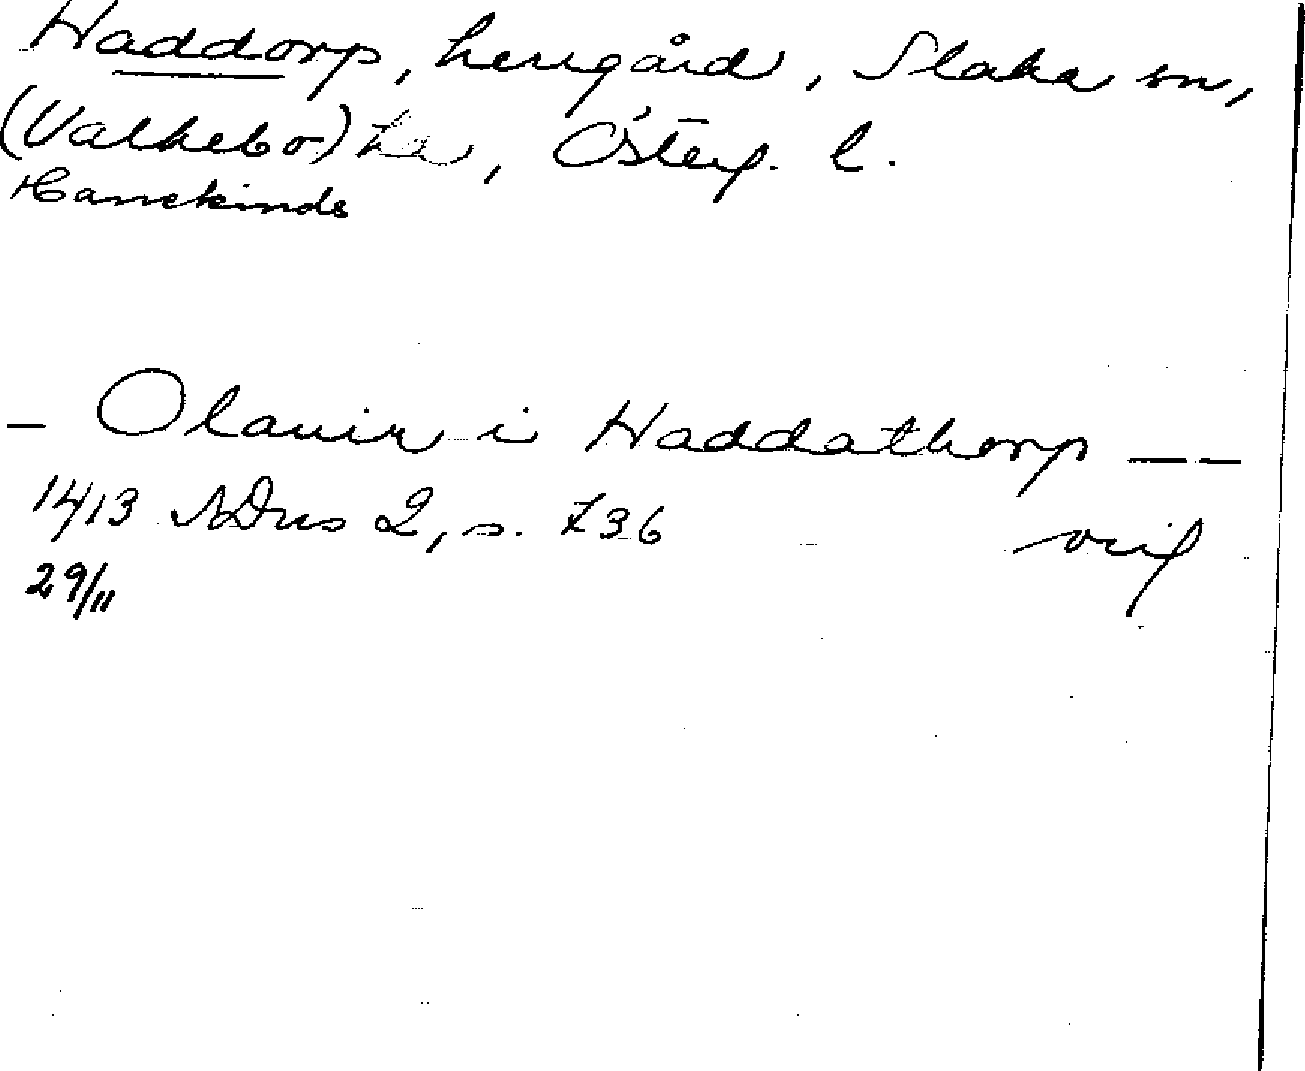 Haddorp, herrgård, Slaka sn,
(Valkebo) hd, Österg. l.
Hanekinds
– Olauir i Haddathorp — —
1413 SDns 2, s. 736
orig
29/11